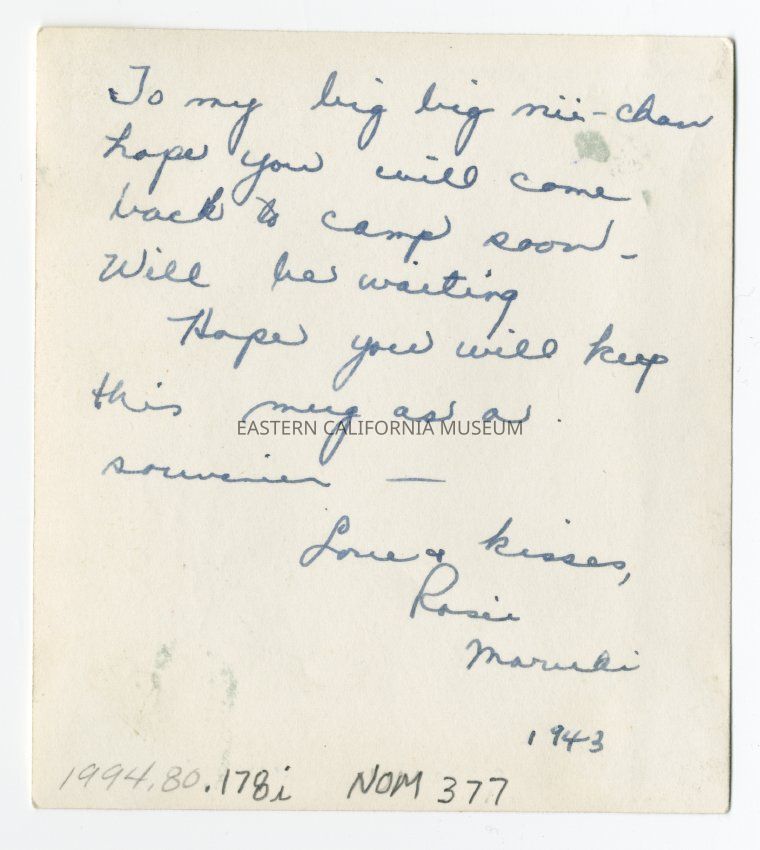 To my big big nii-chan
hope you will come
back to camp soon -
Will be waiting
Hope you will keep
this mug as a
EASTERN CALIFORNIA MUSEUM
souvenier —
Love & kisses,
Rosie
Maruki
1943
1994.80.178i NOM 377